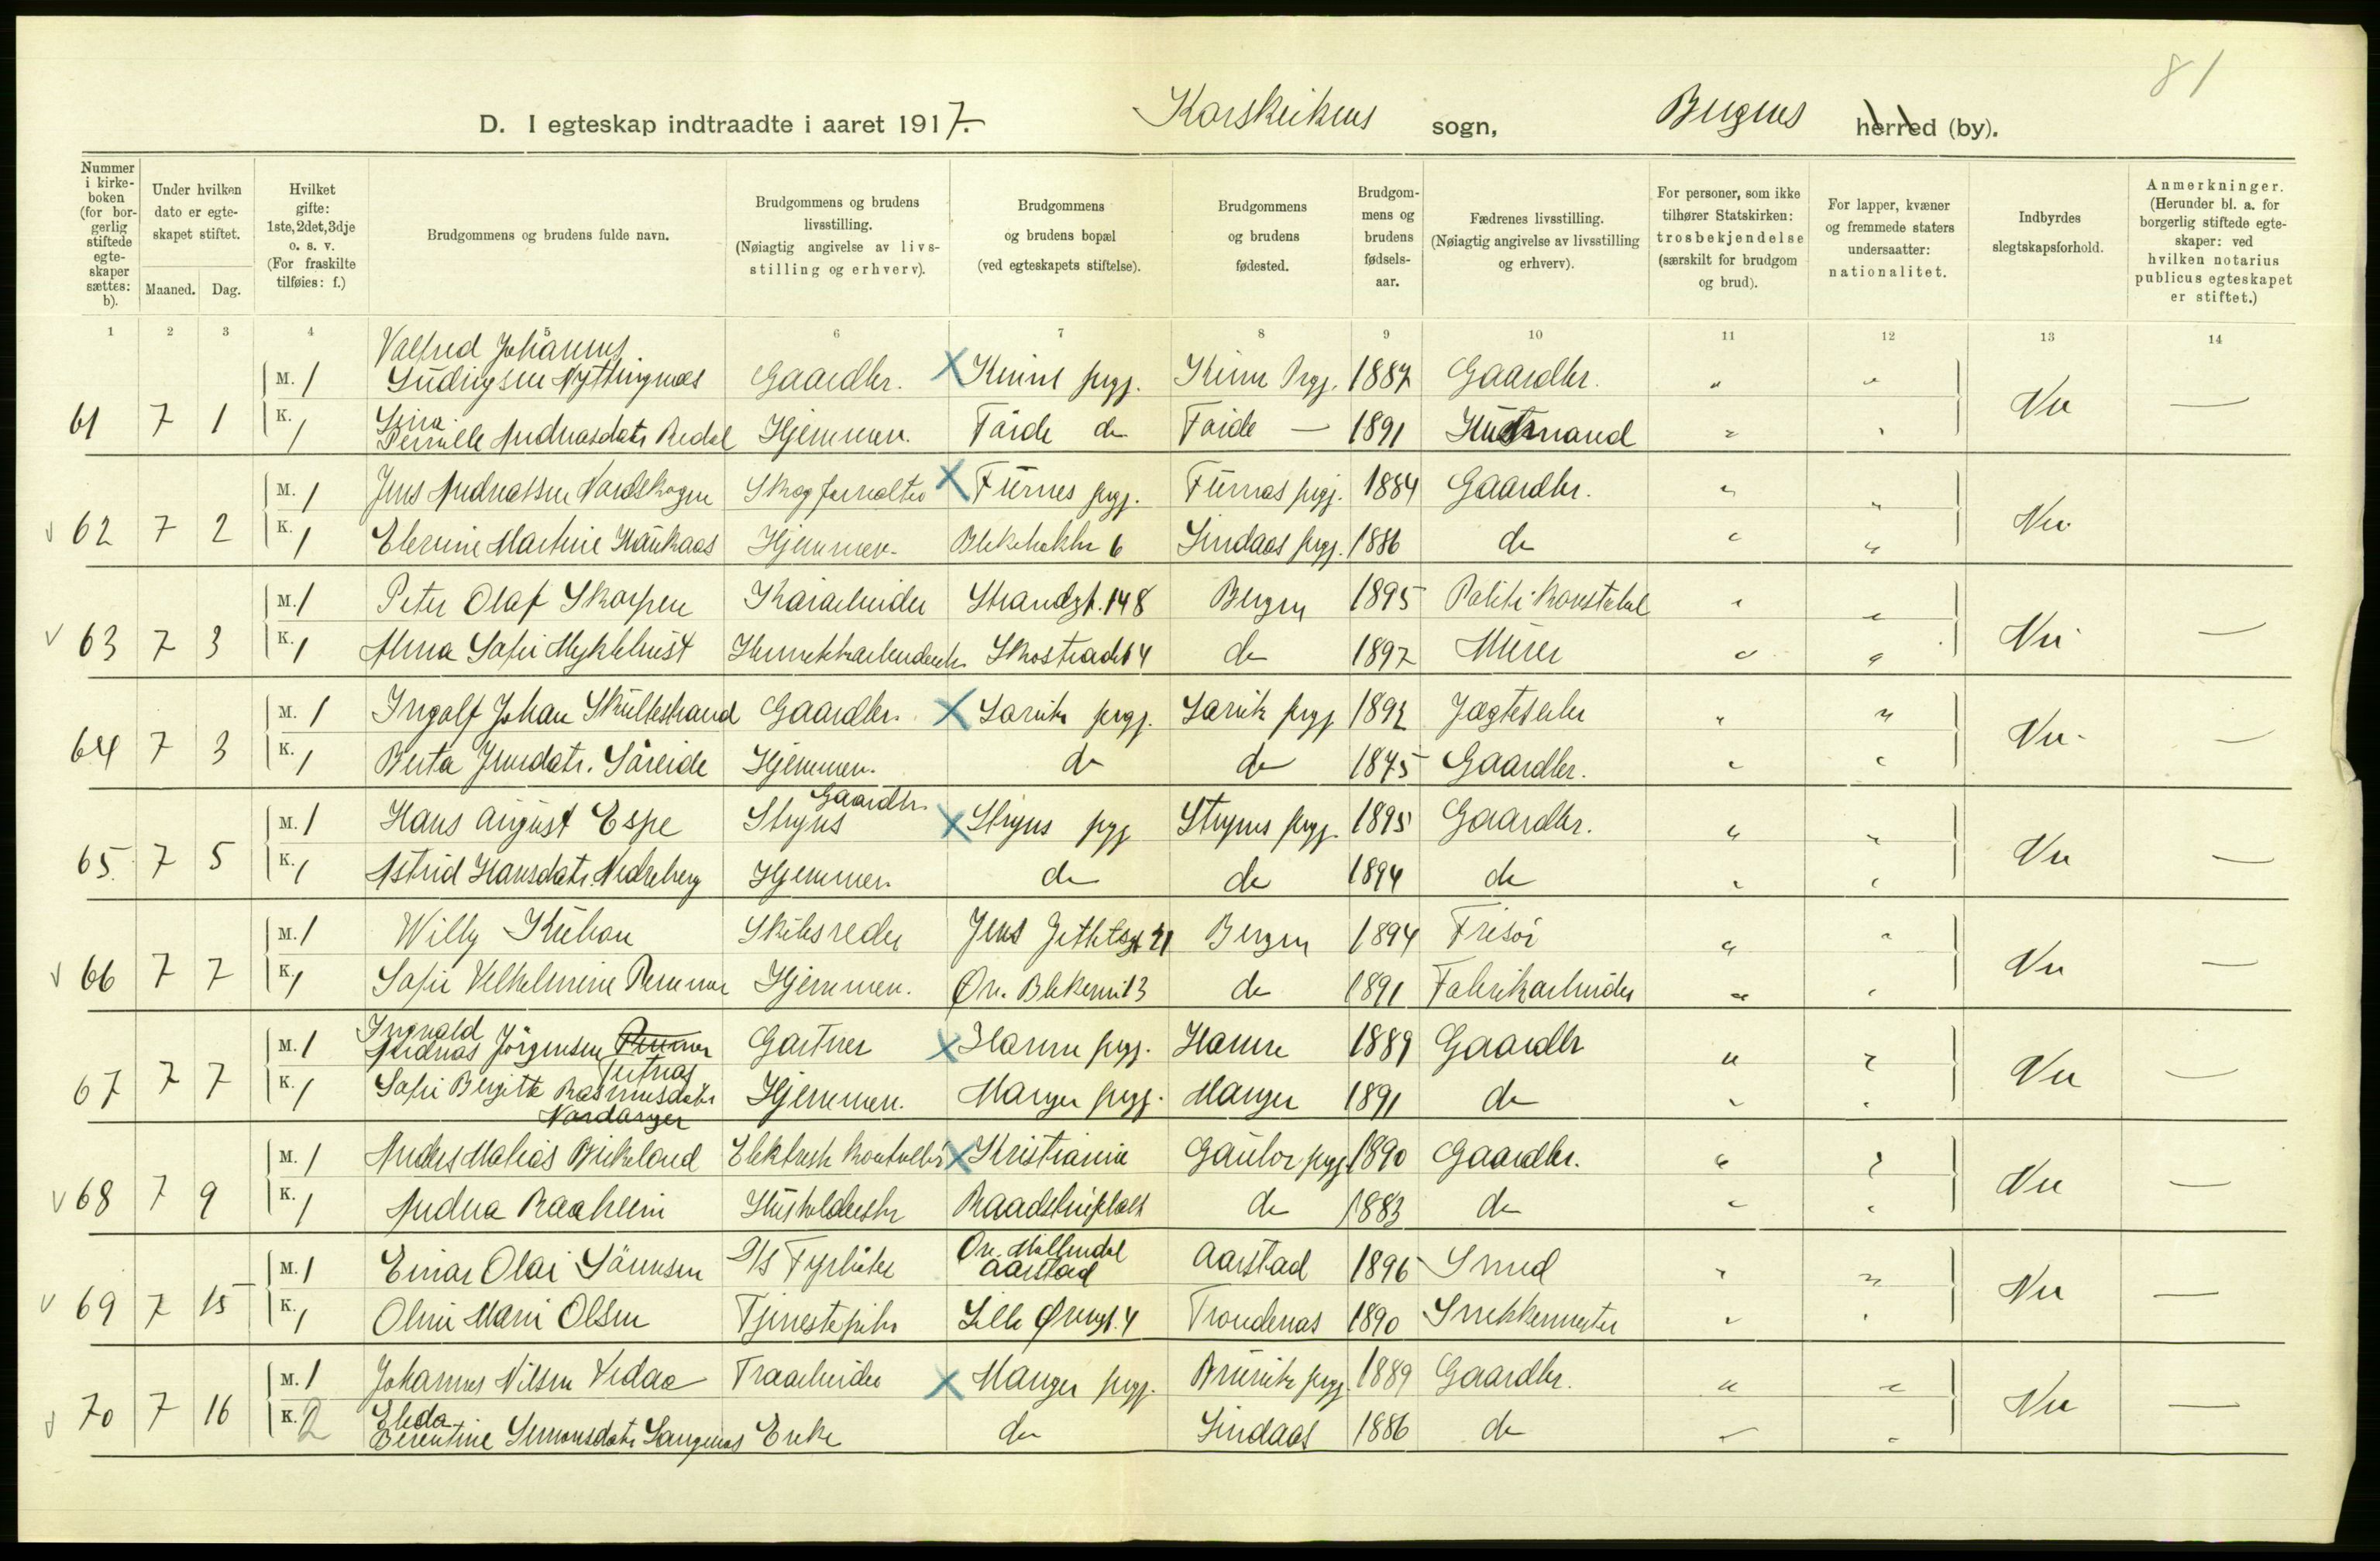 81
D. I egteskap indtraadte i aaret 1917. Korskirkens sogn, Bergens herred (by).
Nummer i kirkeboken (for borgerlig stiftede egteskaper sættes: b).
Under hvilken dato er egteskapet stiftet.
Maaned. Dag.
Hvilket gifte: 1ste, 2det, 3dje o. s. v. (For fraskilte tilføies: f.)
Brudgommens og brudens fulde navn.
Brudgommens og brudens livsstilling. (Nøiagtig angivelse av livsstilling og erhverv).
Brudgommens og brudens bopæl (ved egteskapets stiftelse).
Brudgommens og brudens fødested.
Brudgommens og brudens fødselsaar.
Fædrenes livsstilling. (Nøiagtig angivelse av livsstilling og erhverv).
For personer, som ikke tilhører Statskirken: trosbekjendelse (særskilt for brudgom og brud).
For lapper, kvæner og fremmede staters undersaatter: nationalitet.
Indbyrdes slegtskapsforhold.
Anmerkninger. (Herunder bl. a. for borgerlig stiftede egteskaper: ved hvilken notarius publicus egteskapet er stiftet.)
1 2 3 4 5 6 7 8 9 10 11 12 13 14
Valfred Johannes
M. 1 Ludvigsen Nyttingnes Gaardbr. X Kinn prgj. Kinn Prgj. 1887 Gaardbr. " "
61 7 1 Nei —
K. 1 Pernille Andreasdatr Redal Hjemmev. Førde do Førde — 1891 Husmand " "
M. 1 Jens Andreassen Nordskogen Skogforvalter X Furnes prgj. Furnes prgj. 1884 Gaardbr. " "
v 62 7 2 Nei
K. 1 Martine Haukaas Hjemmev. 6 Lindaas prgj. 1886 do " "
M. 1 Peter Olaf Skorpen Strandgt. 148 Bergen 1895 Politikonstabel " "
v 63 7 3 Nei —
K. 1 Anna Sofie Myklebust do 1897 Murer " "
M. 1 Ingolf Johan Gaardbr. X prgj. prgj 1892 " "
64 7 3 Nei —
K. 1 Berta Jensdatr. Søreide Hjemmev. do do 1895 Gaardbr. " "
Gaardbr.
M. 1 Hans August Espe Stryns X Stryns prgj Stryns prgj. 1895 Gaardbr. " "
65. 7 5 Nei —
K. 1 Astrid Hansdatr. Nedreberg Hjemmev. do do 1894 do " "
M. 1 Willy Skibsreder Bergen 1894 Frisør " "
v 66 7 7 Nei —
K. 1 Sofie Vilhelmine Hjemmev. Øv. Blekevei 13 do 1891 Fabrikarbeider " "
Ingvald
M. 1 Andreas Jørgensen Gartner X Hamre prgj. Hamre 1889 Gaardbr " "
67 7 7 Nei —
K. 1 Sofie Birgitte Rasmusdatr Hjemmev. Manger prgj. Manger 1891 do " "
Nordanger
M. 1 Anders Matias Birkeland Elektrisk X Kristiania Gaular prgj. 1890 Gaardbr. " "
v 68 7 9 Nei —
K. 1 Andrea Raaheim Husholderske Raadstupladsen do 1883 do " "
Øv. Møllendal
M. 1 Einar Olai Sørensen D/S Fyrbøter Aarstad Aarstad 1896 Smed " "
v 69 7 15 Nei —
K. 1 Oline Marie Olsen Tjenestepike Lille Øvregt. 4 Trondenæs 1890 Snekkermester " "
M. 1 Johannes Nilsen Vedaa Træarbeider X Manger prgj. Bruvik prgj. 1889 Gaardbr. " "
v 70 7 16 Nei —
Elida
K. 2 Berentine Simonsdatr Enke do Lindaas 1886 do " "